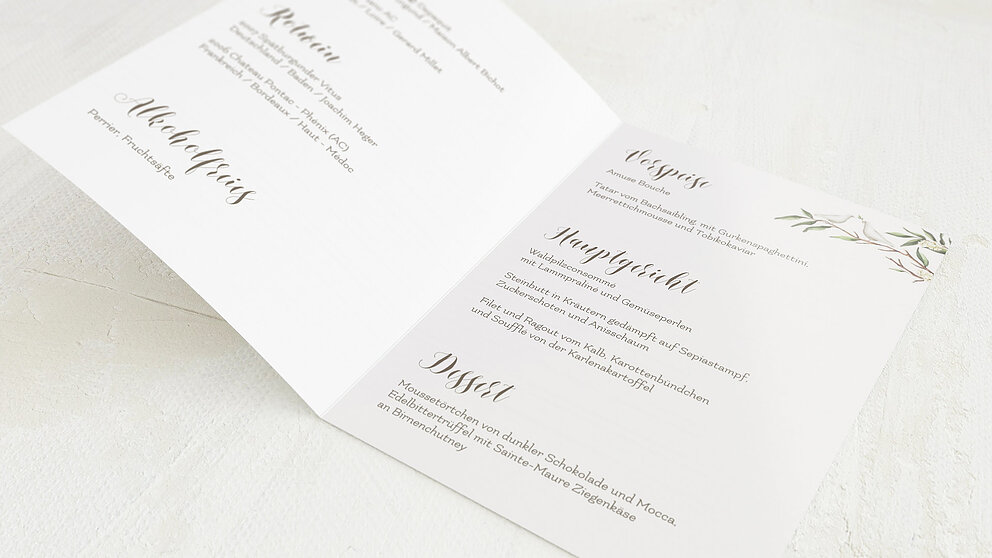 AC
/ Gerard Millet
/ Maison Albert Bichot
Rotwein
2007 Spätburgunder Vitus
Deutschland / Baden / Joachim Heger
2006 Chateau Pontac - Phenix (AC)
Frankreich / Bordeaux / Haut - Medoc
Alkoholfreies
Perrier, Fruchtsäfte
Vorspeise
Amuse Bouche
Tatar vom Bachsaibling, mit Gurkenspaghettini,
Meerrettichmousse und Tobikokaviar
Hauptgericht
Waldpilzconsomme
mit Lammpraline und Gemüseperlen
Steinbutt in Kräutern gedämpft auf Sepiastampf,
Zuckerschoten und Anisschaum
Filet und Ragout vom Kalb, Karottenbündchen
und Soufflé von der Karlenakartoffel
Dessert
Moussetörtchen von dunkler Schokolade und Mocca,
Edelbittertrüffel mit Sainte-Maure Ziegenkäse
an Birnenchutney